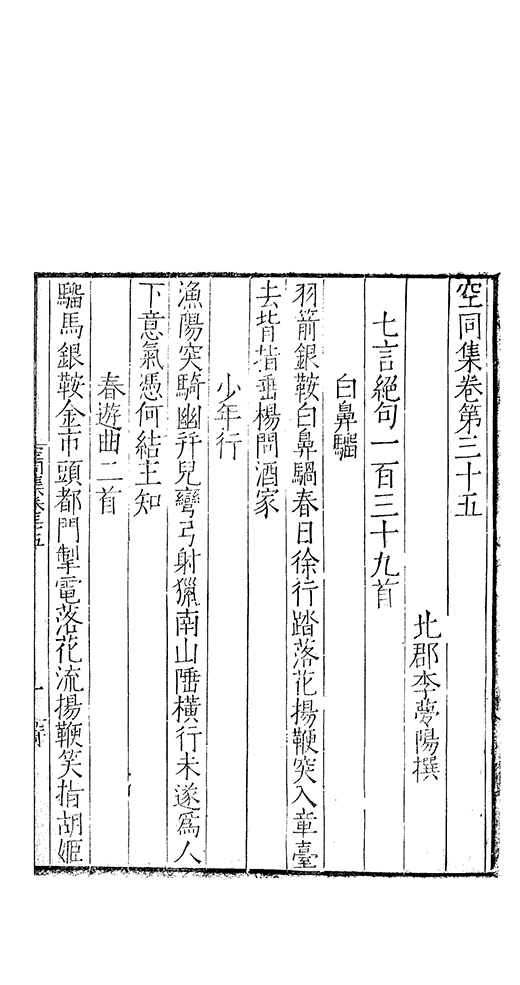 空同集卷第三十五
北郡李夢陽撰
七言絕句一百三十九首
白鼻騧
羽箭銀鞍白鼻騧春日徐行踏落花揚鞭突入章臺
去背指垂楊問酒家
少年行
漁陽突騎幽并兒彎弓射獵南山陲橫行未遂爲人
下意氣憑何結主知
春遊曲二首
騮馬銀鞍金市頭都門掣電落花流揚鞭笑指胡姬
空同集卷三十五
一